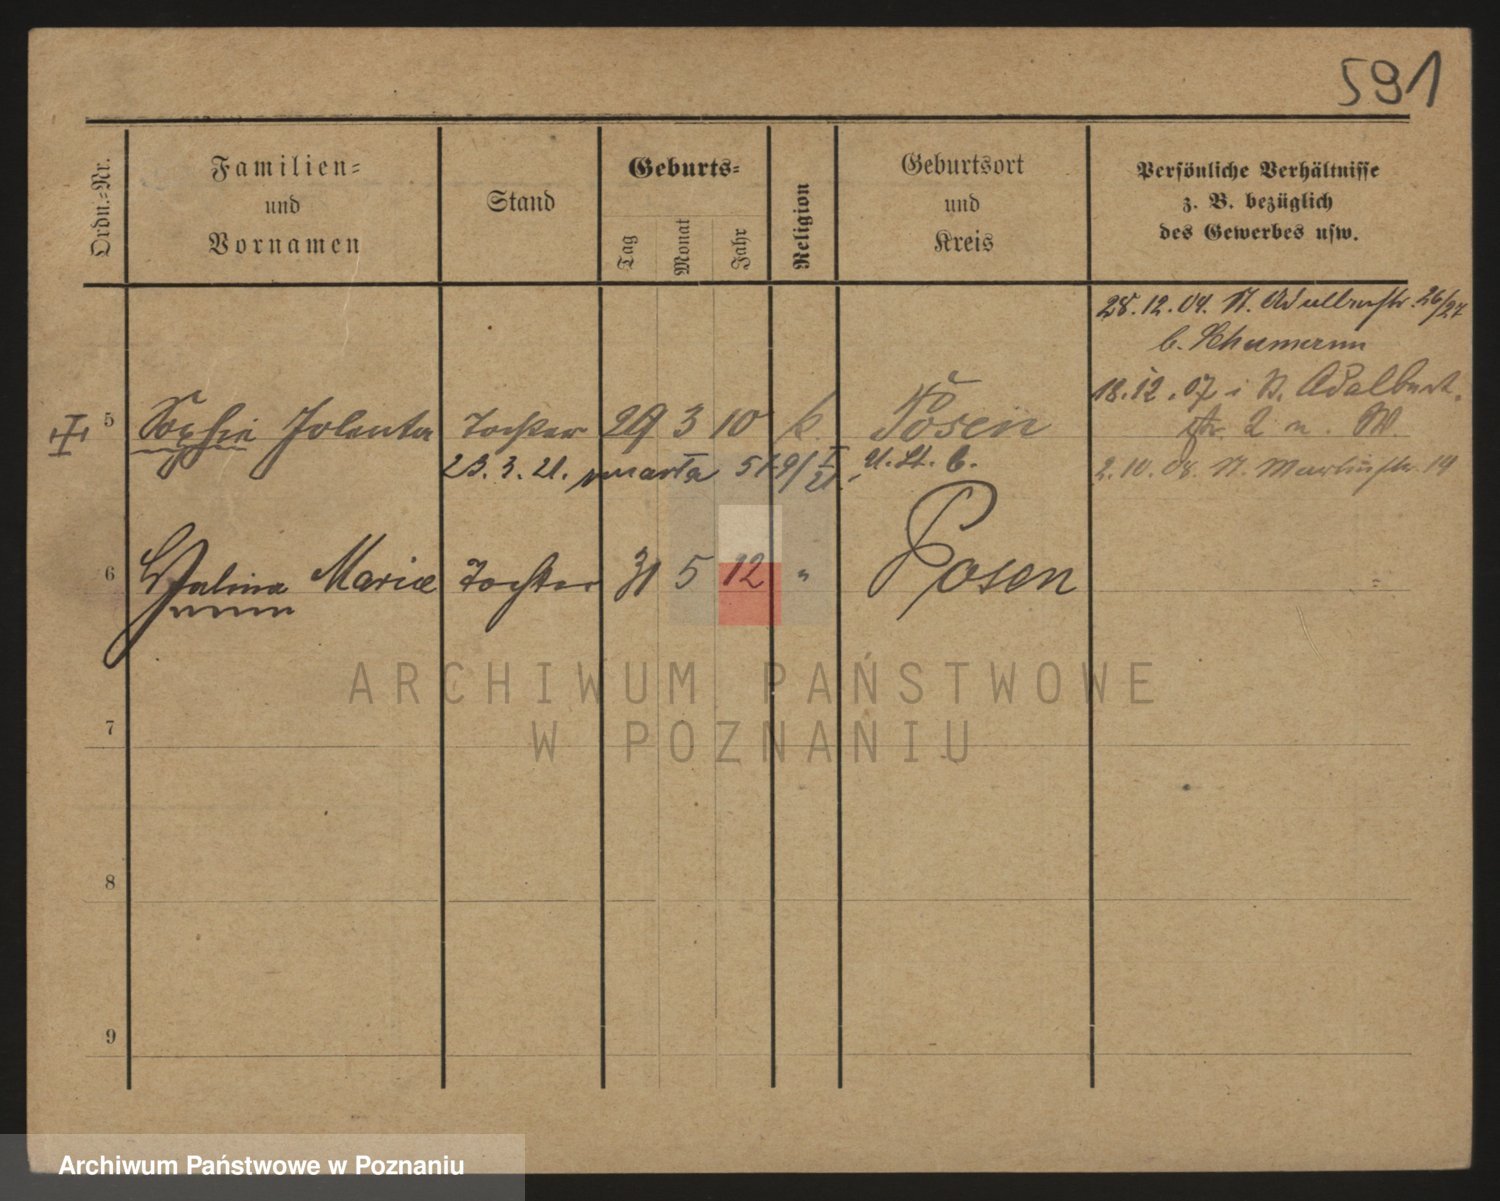 591
Ordn.-Nr.
Familien-
und
Vornamen
Stand
Geburts-
Tag
Monat
Jahr
Religion
Geburtsort
und
Kreis
Persönliche Verhältnisse
z. B. bezüglich
des Gewerbes usw.
28.12.04. 26/27
b.
18.12.07
5 Sophie Jolanta Tochter 29 3 10 k. Posen
2 W.
23.3.21. zmarła 519/I 21. U.St.C.
2.10.08. 19
6 Halina Maria Tochter 31 5 12 " Posen
7
8
9
ARCHIWUM PAŃSTWOWE
W POZNANIU
Archiwum Państwowe w Poznaniu